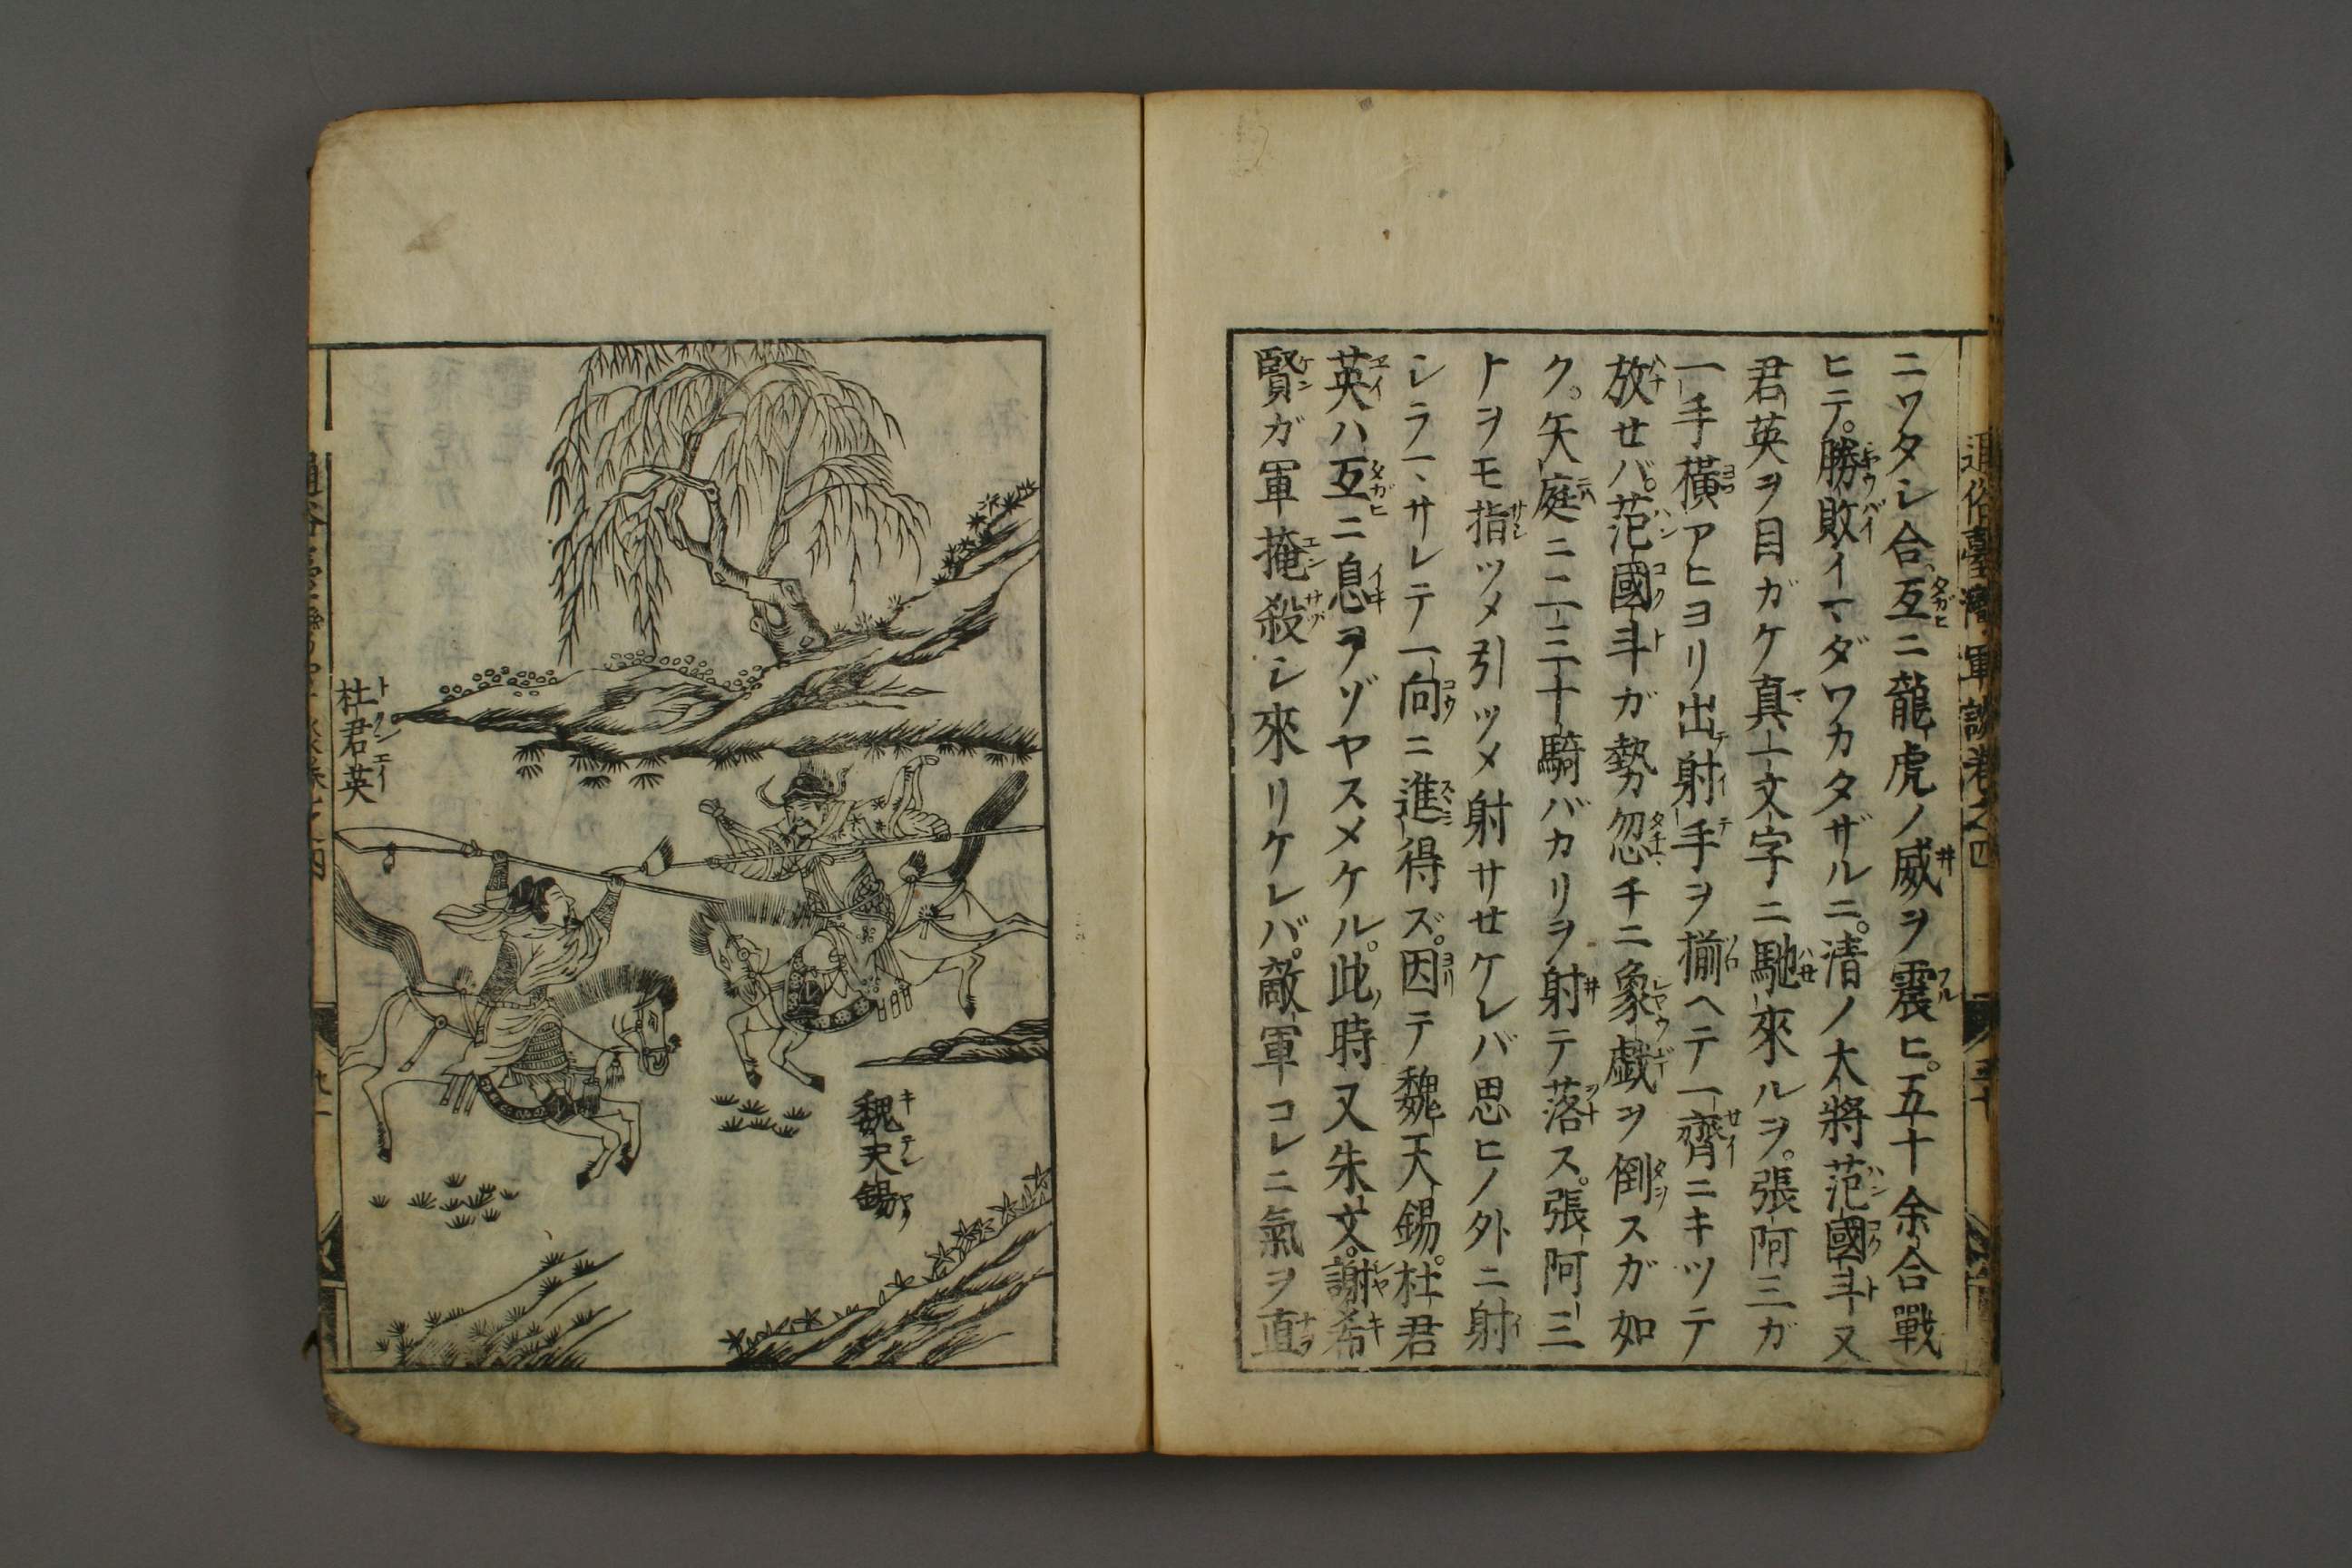 通俗臺灣軍談卷之四
ニワタシ合互ニ龍虎ノ威ヲ震ヒ。五十余合戰
ヒテ。勝敗イマダワカタザルニ。清ノ大將范國斗又
君英ヲ目ガケ真一文字ニ馳來ルヲ。張阿三ガ
一手橫アヒヨリ出射手ヲ揃ヘテ一齊ニキツテ
放セバ。范國斗ガ勢忽チニ象戯ヲ倒スガ如
ク。矢庭ニ二三十騎バカリヲ射テ落ス。張阿三
トヲモ指ツメ引ツメ射サセケレバ思ヒノ外ニ射
シラマサレテ一向ニ進得ズ。因テ魏天錫。杜君
英ハ互ニ息ヲゾヤスメケル。此時又朱文。謝希
賢ガ軍掩殺シ來リケレバ。敵軍コレニ氣ヲ直
魏天錫
杜君英